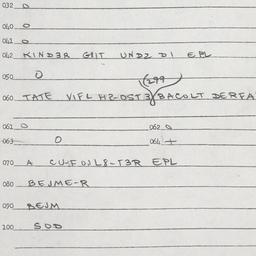 032 0
040 0
041 0
042 KIND3R GIIT UNDZ DI EPL
050 0
(299
060 TATE VIFL HZ-OST3 BACOLT DERFA
061 0 062 0
063 0 064 +
070 A EPL
080 BEJME-R
090 BEJM
100 SOD